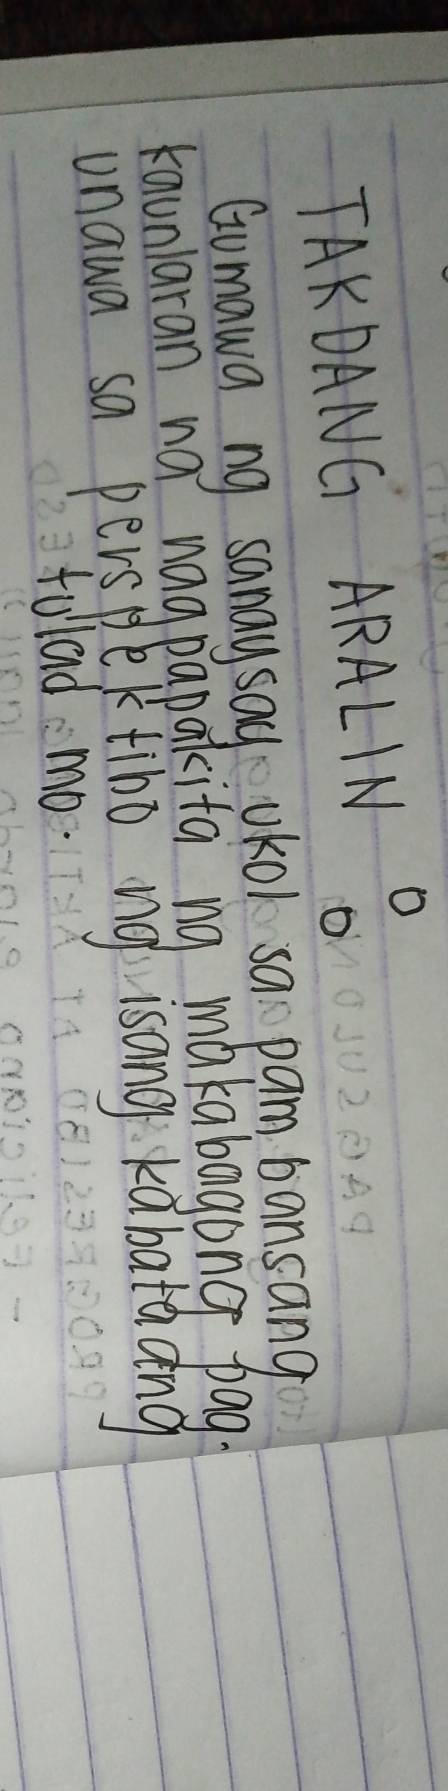 TAKDANG ARALIN :
Gumawa ng sanaysay ukol sa pambansang
kaunlaran na nagpapakita ng makabagong pag-
unawa sa perspektibo ng isang kabataang
tulad mo.